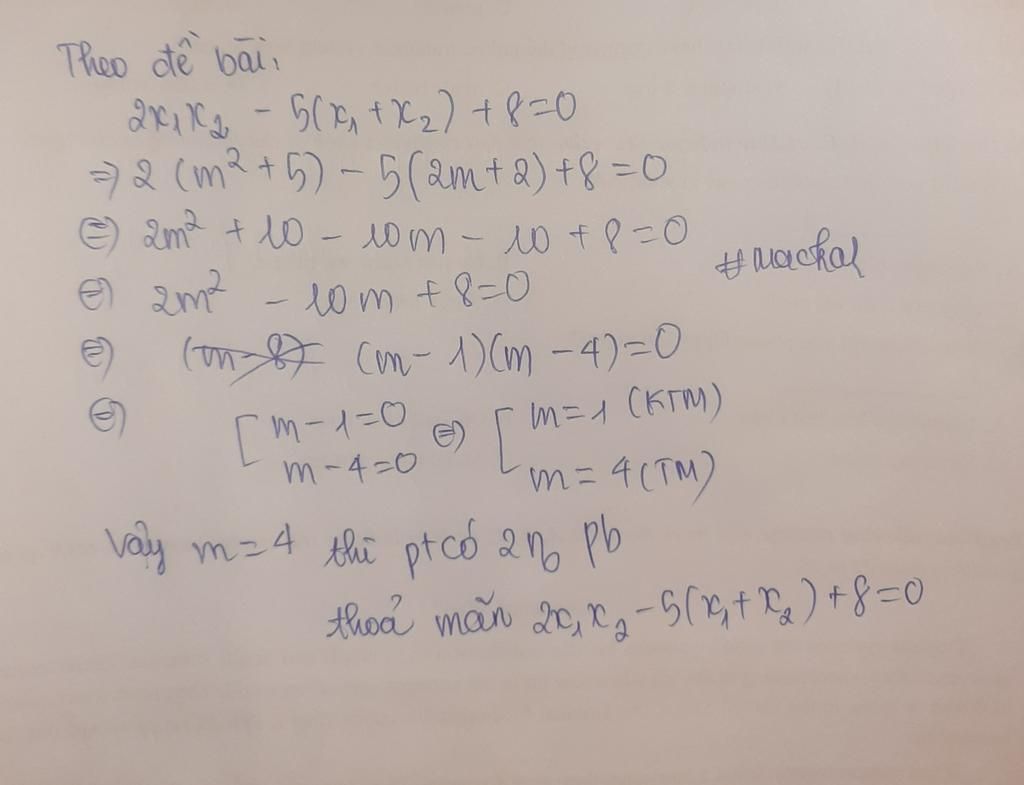 Theo đề bài,
2x₁x₂ - 5(x₁ + x₂) + 8 = 0
⇒ 2 (m² + 5) - 5(2m + 2) + 8 = 0
⇔ 2m² + 10 - 10m - 10 + 8 = 0
⇔ 2m² - 10m + 8 = 0
⇔ (m - 1)(m - 4) = 0
⇔ [ m - 1 = 0 ⇔ [ m = 1 (KTM)
m - 4 = 0 m = 4 (TM)
Vậy m = 4 thì pt có 2 n₀ pb
thoả mãn 2x₁x₂ - 5(x₁ + x₂) + 8 = 0